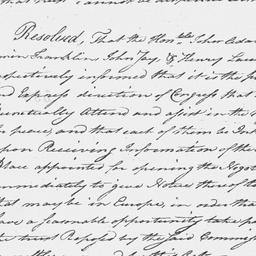 Resolved, That the Honble John Adam
min Franklin, John Jay, & Henry Lau
spectively informed that it is the p
nd Express direction of Congress that
unctually Attend and assist in the
for peace, and that each of them be In
upon Receiving Information of the
Place appointed for opening the Negot
mmediately to give Notice thereof to
that may be in Europe, in order tha
have a seasonable opportunity take pa
the trust Reposed by the said Commiss